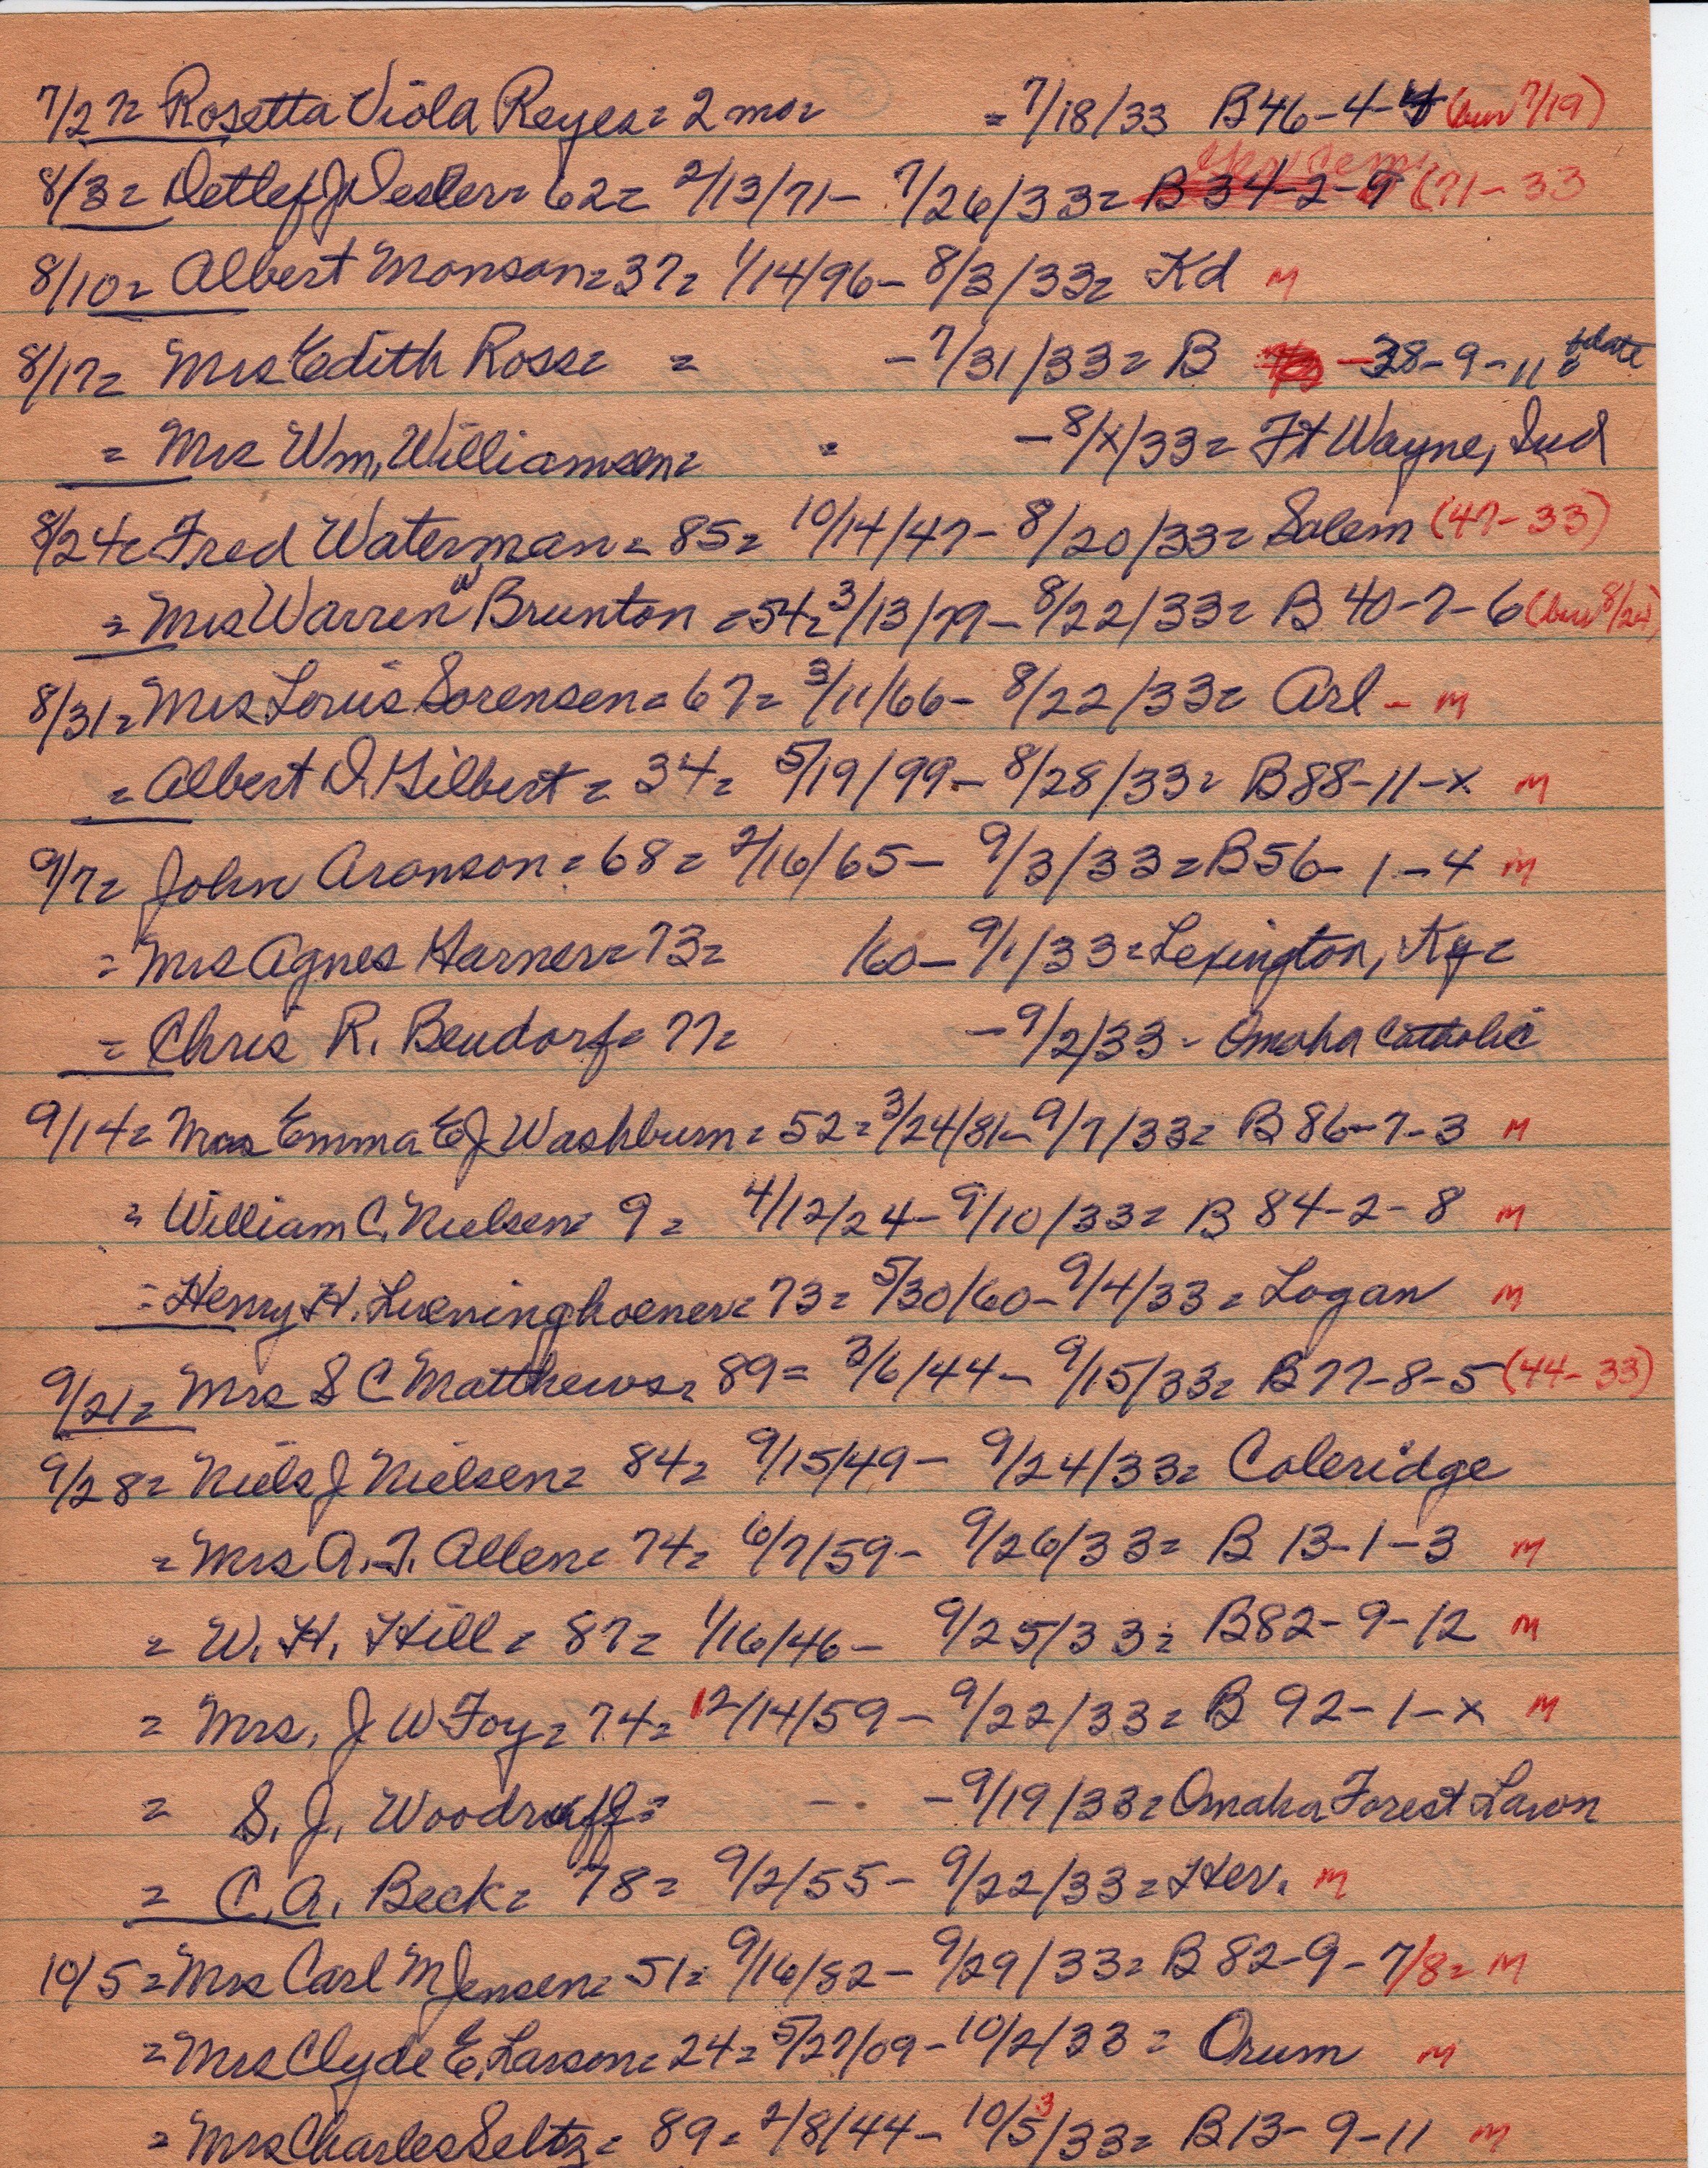 7/27= Rosetta Viola Reyes= 2 mo= = 7/18/33 B46-4-4 (bur 7/19)
8/3= Detlef J 62= 2/13/71- 7/26/33= B 34-2-9 (71-33
8/10= Albert Monson=37= 1/14/96- 8/3/33= Kd M
8/17= Mrs Edith Ross= = -7/31/33= B 38-9-11 =
= Mrs Wm, Williamson= = -8/x/33= Ft Wayne, Ind
8/24= Fred Waterman= 85= 10/14/47- 8/20/33= Salem (47-33)
= Mrs Warren W Brunton =54= 3/13/79- 8/22/33= B 40-7-6 (bur 8/24)
8/31= Mrs Louis Sorensen= 67= 3/11/66- 8/22/33= Arl - M
= Albert D. Gilbert= 34= 5/19/99- 8/28/33= B88-11-x M
9/7= John Aronson= 68= 2/16/65- 9/3/33=B56-1-4 M
= Mrs Agnes Harner= 73= /60- 9/1/33=Lexington, Ky=
= Chris R. Bendorf= 77= -9/2/33- Omaha Catholic
9/14= Mrs Emma E J Washburn= 52= 3/24/81- 9/7/33= B 86-7-3 M
= William C. Nielsen= 9= 4/12/24- 9/10/33= B 84-2-8 M
= Henry H. Lueninghoener= 73= 5/30/60- 9/4/33= Logan M
9/21= Mrs S C Matthews= 89= 3/6/44- 9/15/33= B 77-8-5 (44-33)
9/28= Niels J Nielsen= 84= 9/15/49- 9/24/33= Coleridge
= Mrs A. T. Allen= 74= 6/7/59- 9/26/33= B 13-1-3 M
= W. H. Hill= 87= 1/16/46- 9/25/33= B82-9-12 M
= Mrs. J W Foy= 74= 12/14/59- 9/22/33= B 92-1-x M
= S. J. Woodruff= - -9/19/33=Omaha Forest Lawn
= C. A. Beck= 78= 9/2/55- 9/22/33=Her. M
10/5=Mrs Carl M Jensen= 51= 9/16/82- 9/29/33= B 82-9-7/8= M
=Mrs Clyde E. Larson= 24= 5/27/09- 10/2/33= Orum M
=Mrs Charles Seltz= 89= 2/8/44- 10/5 3/33= B13-9-11 M